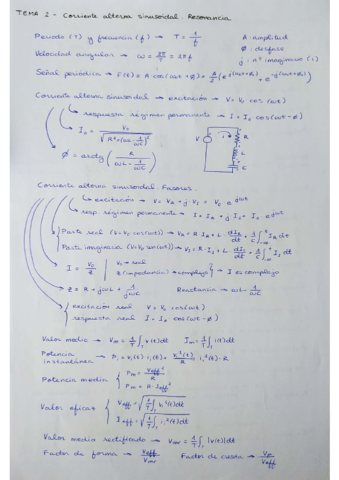 TEMA 2 - Corriente alterna sinusoidal. Resonancia.
Periodo (T) y frecuencia (f) → T = 1/f
A: amplitud
Velocidad angular → ω = 2π/T = 2πf
φ: desfase
j: nº imaginario (i)
Señal periódica → f(t) = A·cos(ωt+φ) = A/2 (e^j(ωt+φ) + e^-j(ωt+φ))
Corriente alterna sinusoidal → excitación → V = V₀ cos(ωt)
respuesta régimen permanente → I = I₀ cos(ωt-φ)
I₀ = V₀/√(R²+(ωL-1/ωC)²)
φ = arctg (R/(ωL-1/ωC))
V
i
R
L
C
Corriente alterna sinusoidal. Fasores.
excitación → V = V_R + j·V_I = V₀ e^jωt
resp. régimen permanente → I = I_R + j I_I = I₀ e^jωt
Parte real (V=V₀ cos(ωt)) → V_R = R·I_R + L dI_R/dt + 1/C ∫ I_R dt
Parte imaginaria (V=V₀ sen(ωt)) → V_I = R·I_I + L dI_I/dt + 1/C ∫ I_I dt
I = V₀/z { V₀ → real
z (impedancia) → complejo } → I es complejo
z = R + jωL + 1/jωC
Reactancia → ωL - 1/ωC
excitación real V = V₀ cos(ωt)
respuesta real I = I₀ cos(ωt-φ)
Valor medio → V_m = 1/T ∫ v(t)dt I_m = 1/T ∫ i(t)dt
Potencia
instantánea → P_i = v(t)·i(t) = v²(t)/R = i²(t)·R
Potencia media { P_m = V_eff²/R
P_m = R·I_eff²
Valor eficaz { V_eff = √(1/T ∫ v²(t)dt)
I_eff = √(1/T ∫ i²(t)dt)
Valor medio rectificado → V_mr = 1/T ∫ |v(t)|dt
Factor de forma → V_eff/V_mr Factor de cresta → V_p/V_eff